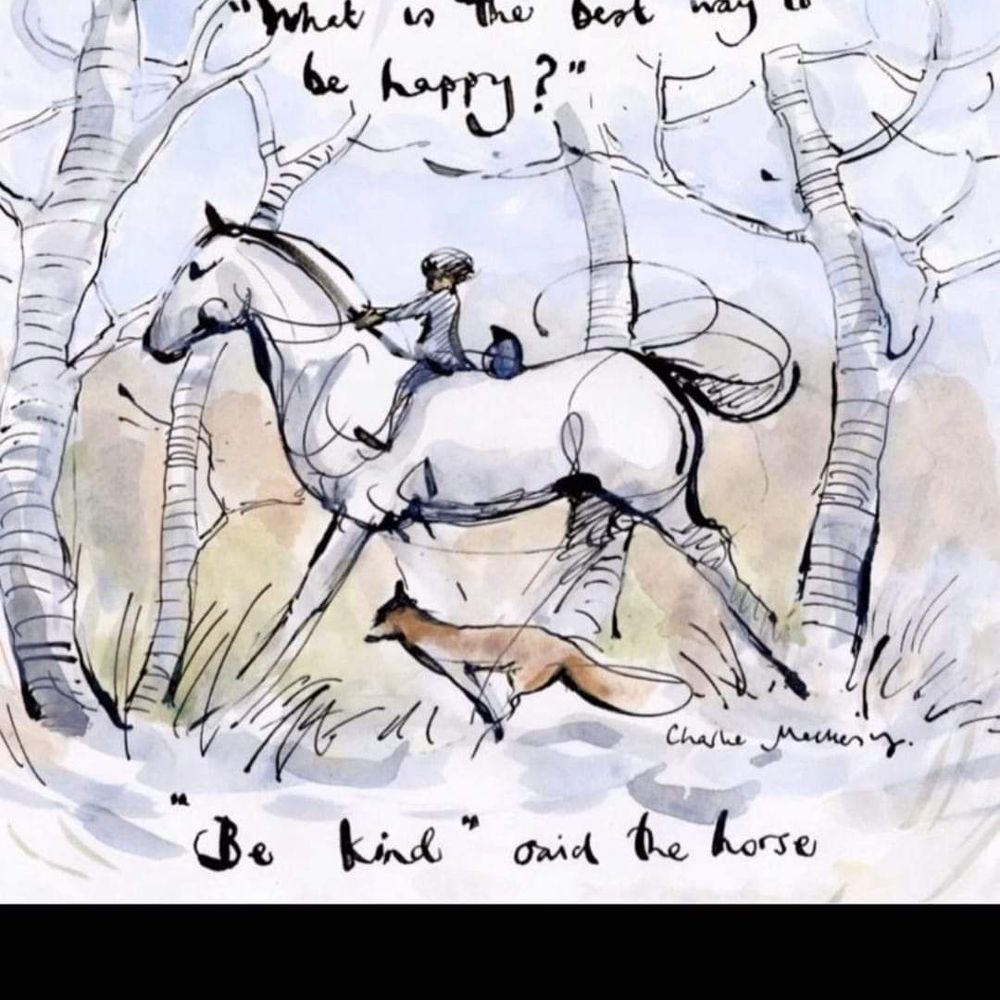 "What is the best way to
be happy?"
Charlie Mackesy.
"Be kind" said the horse